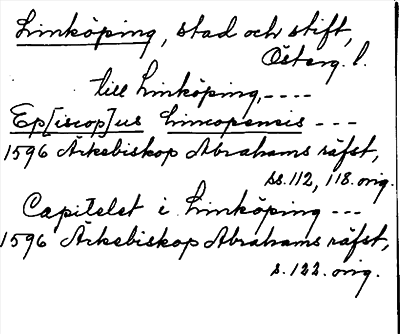 Linköping, stad och stift,
Österg. l.
till Linköping, ----
Ep[iscop]us Lincopensis ---
1596 Ärkebiskop Abrahams räfst,
ss. 112, 118. orig.
Capitelet i Linköping ---
1596 Ärkebiskop Abrahams räfst,
s. 122. orig.